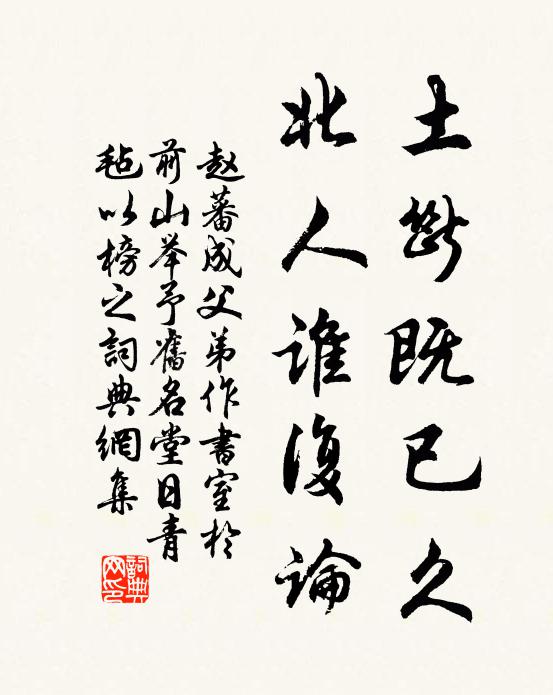 土斷既已久
北人誰復論
赵蕃成父弟作書室於
前山举予舊名堂日青
毡以榜之詞典網集
詞典
网印